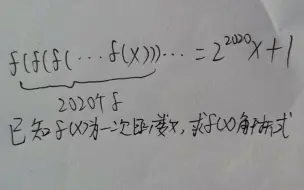 f(f(f(⋯f(x)))⋯ = 2^2020 x+1
2020个f
已知f(x)为一次函数,求f(x)解析式